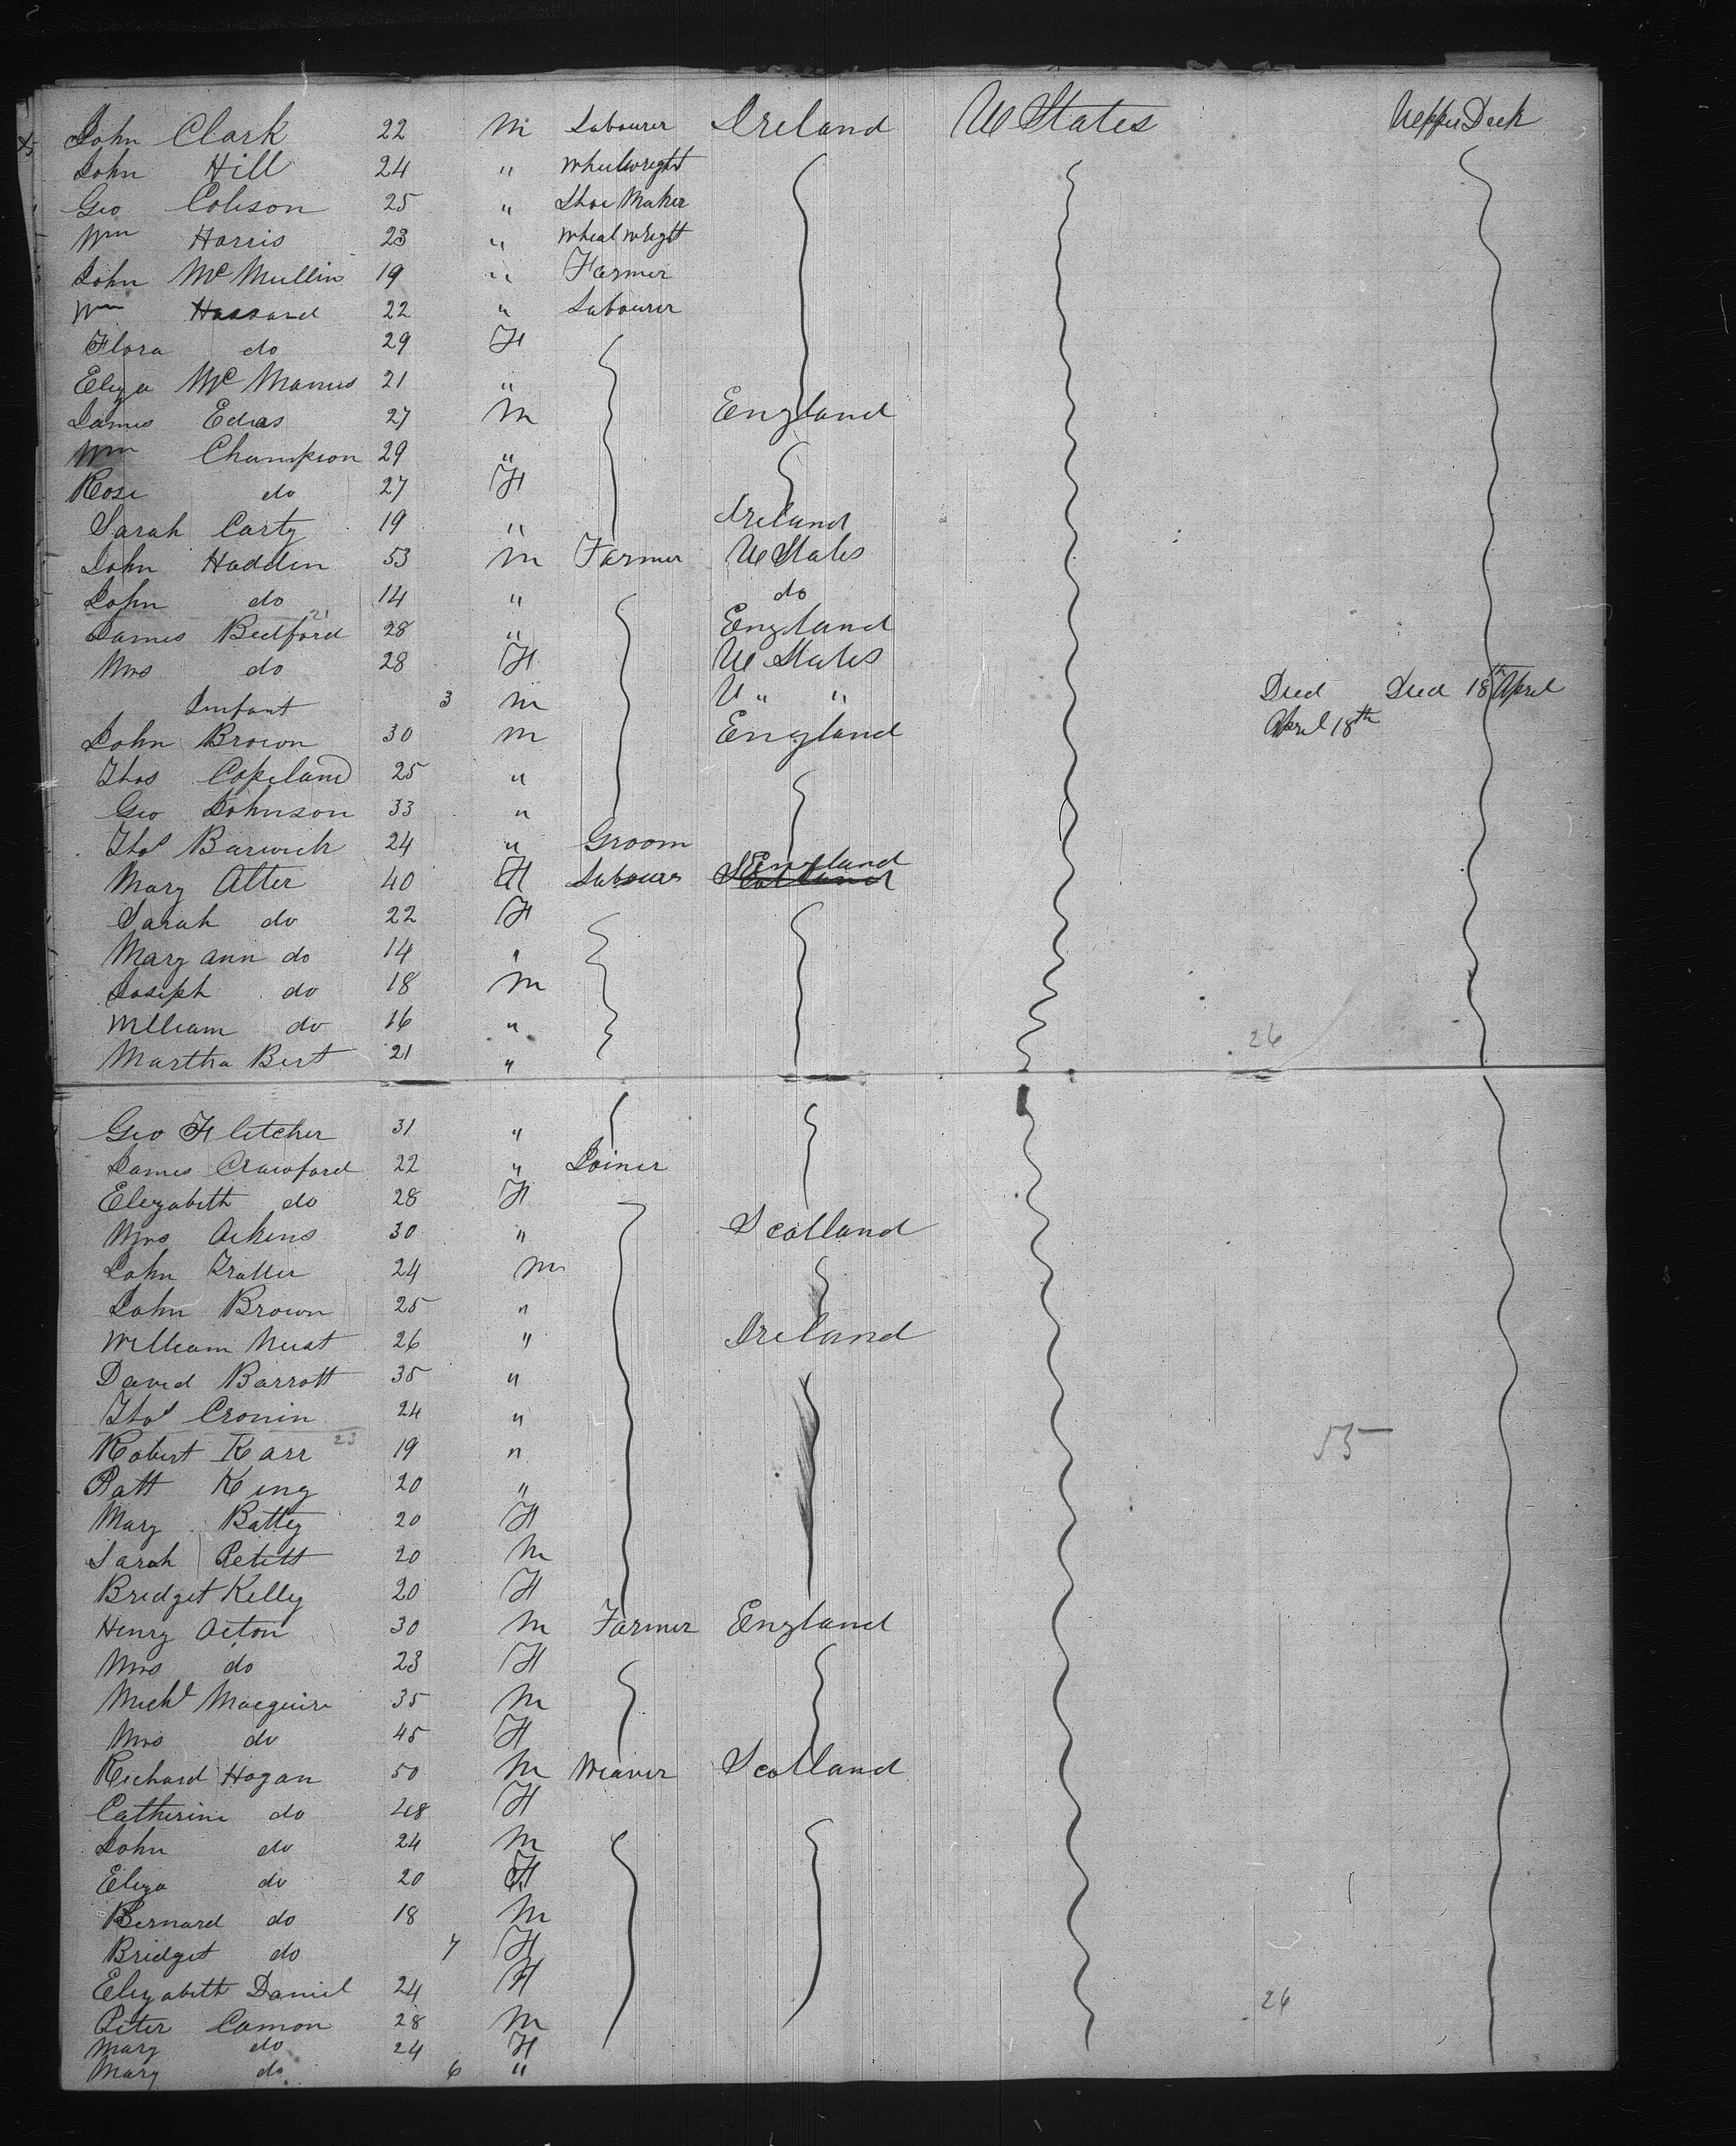 John Clark 22 M Labourer Ireland U States Upper Deck
John Hill 24 " Wheelwright
Geo Colison 25 " Shoe Maker
Wm Harris 23 " Wheelwright
John McMullin 19 " Farmer
Wm Hassard 22 " Labourer
Flora do 29 F
Eliza McManus 21 "
James Edias 27 M England
Wm Champion 29 "
Rose do 27 F
Sarah Carty 19 " Ireland
John Hadden 53 M Farmer U States
John do 14 " do
James Bedford 28 " England
Mrs do 28 F U States
Infant 3 M U " " Died Died 18th April
John Brown 30 M England April 18th
Thos Copeland 25 "
Geo Johnson 33 "
Thos Barwick 24 " Groom
Mary Alter 40 F Labourer England
Sarah do 22 F
Mary ann do 14 "
Joseph do 18 M
William do 16 " 26
Martha Bert 21 "
Geo Fletcher 31 "
James Crawford 22 " Joiner
Elizabeth do 28 F
Mrs Aikens 30 " Scotland
John Trotter 24 M
John Brown 25 "
William 26 " Ireland
David Barrott 35 "
Thos Cronin 24 "
Robert Karr 23 19 " 55
Patt King 20 "
Mary Battey 20 F
Sarah Petitt 20 M
Bridget Kelly 20 F
Henry Acton 30 M Farmer England
Mrs do 23 F
Michl Macguire 35 M
Mrs do 45 F
Richard Hogan 50 M Weaver Scotland
Catherine do 48 F
John do 24 M
Eliza do 20 F
Bernard do 18 M
Bridget do 7 F
Elizabeth Daniel 24 F
Peter Camon 28 M 26
Mary do 24 F
Mary do 6 "